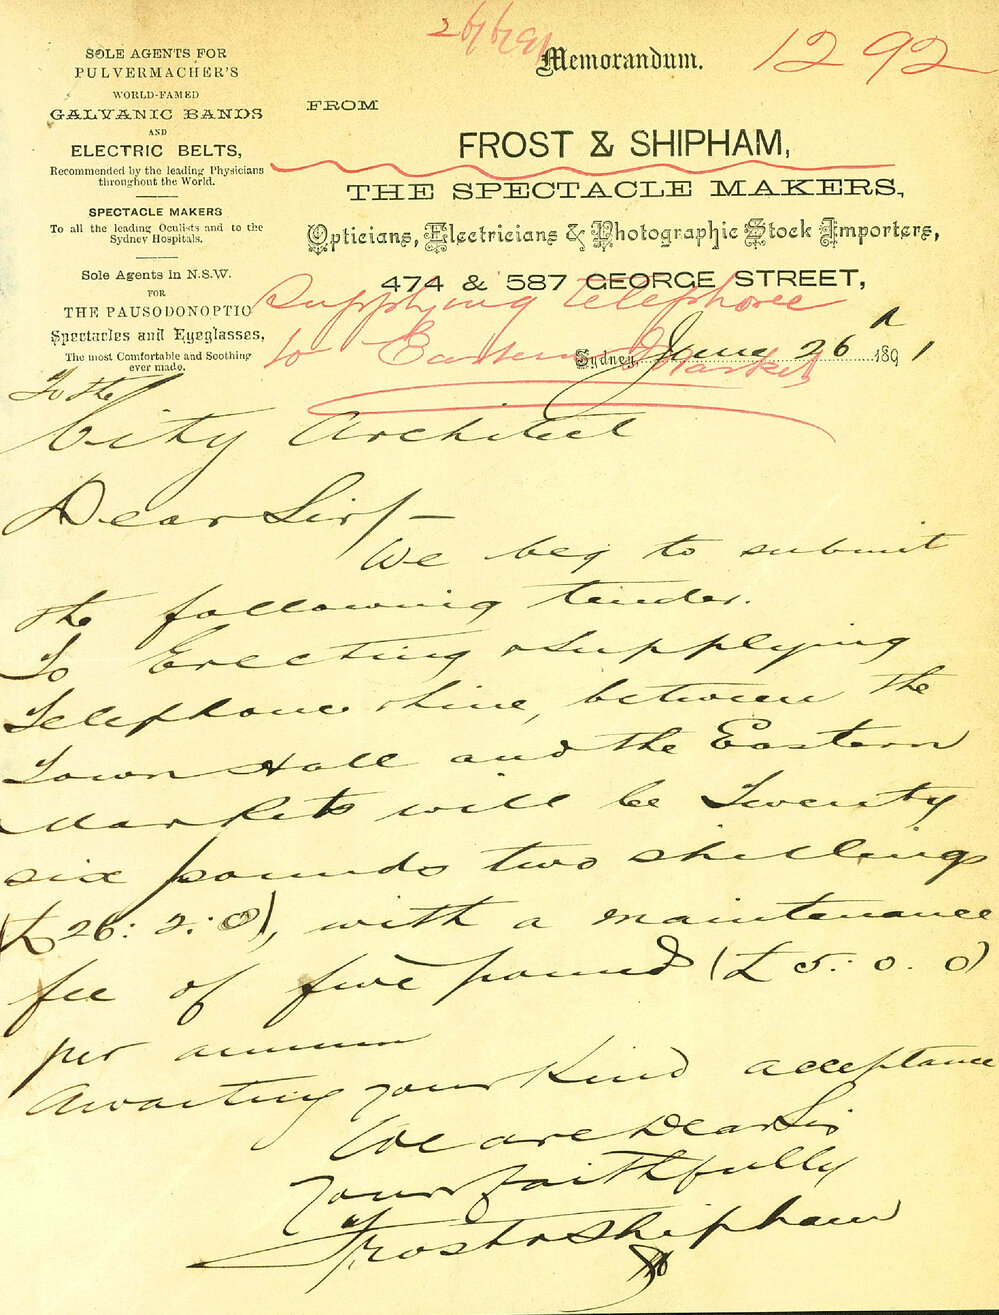 SOLE AGENTS FOR
PULVERMACHER'S
WORLD-FAMED
GALVANIC BANDS
AND
ELECTRIC BELTS,
Recommended by the leading Physicians
throughout the World.
SPECTACLE MAKERS
To all the leading Oculists and to the
Sydney Hospitals.
Sole Agents in N.S.W.
FOR
THE PAUSODONOPTIC
Spectacles and Eyeglasses,
The most Comfortable and Soothing
ever made.
26/6/91
Memorandum.
1292
FROM
FROST & SHIPHAM,
THE SPECTACLE MAKERS,
Opticians, Electricians & Photographic Stock Importers,
474 & 587 GEORGE STREET,
Supplying telephone
to Eastern Market
Sydney, June 26 1891
To the
City Architect
Dear Sir/-
We beg to submit
the following tender.
To Erecting & supplying
Telephone & line, between the
Town Hall and the Eastern
Markets will be Twenty
six pounds two shillings
(£26: 2: 0), with a maintenance
fee of five pound (£5. 0. 0)
per annum
Awaiting your kind acceptance
We are Dear Sir
Yours faithfully
Frost & Shipham